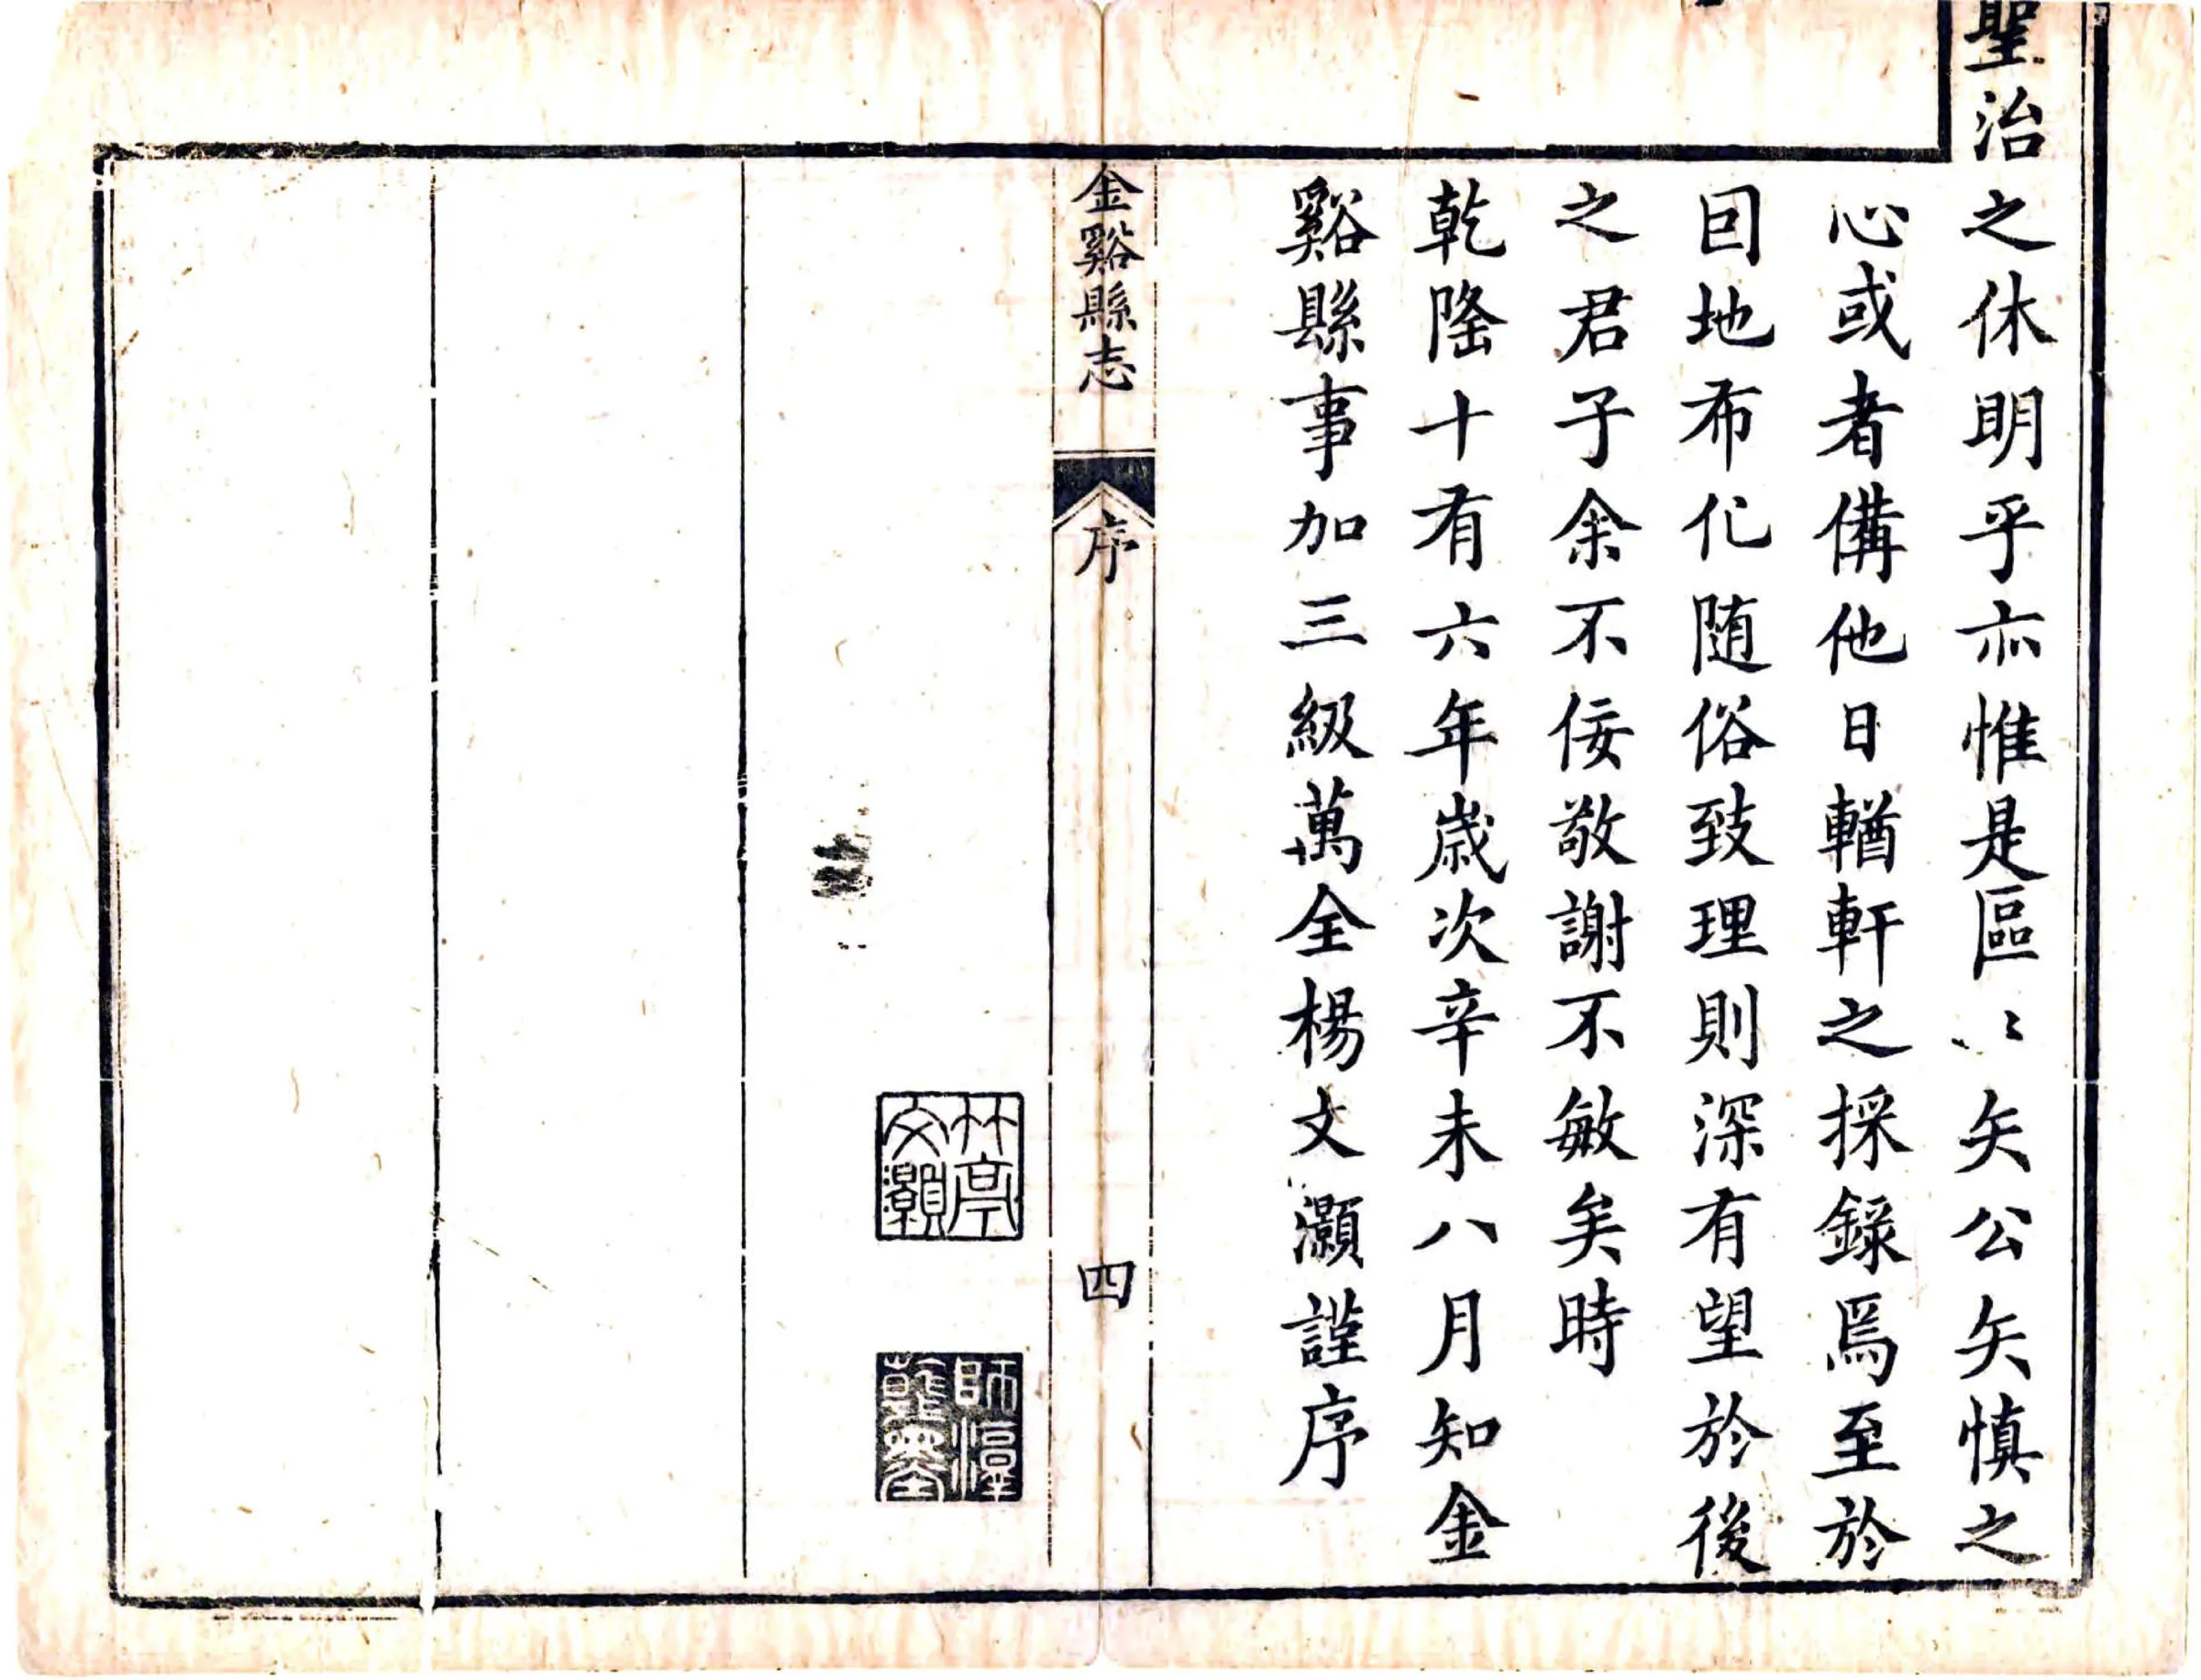 聖治之休明乎亦惟是區〻矢公矢慎之
心或者備他日輶軒之採錄焉至於
因地布化随俗致理則深有望於後
之君子余不佞敬謝不敏矣時
乾隆十有六年歲次辛未八月知金
谿縣事加三級萬全楊文灝謹序
金谿縣志
序
四
竹亭
文灝